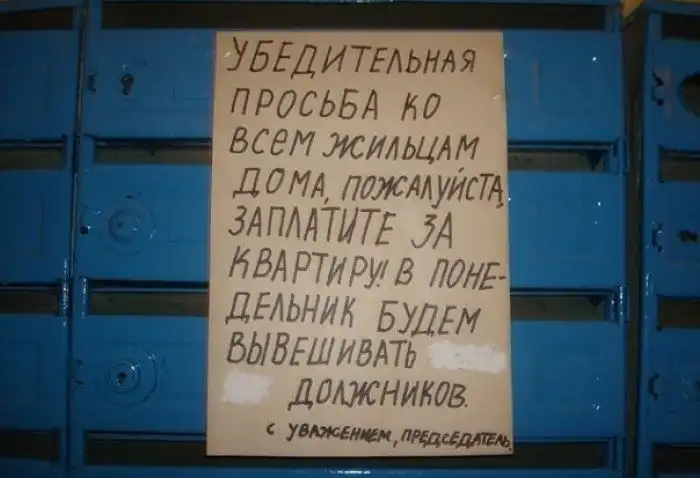 УБЕДИТЕЛЬНАЯ
ПРОСЬБА КО
ВСЕМ ЖИЛЬЦАМ
ДОМА, ПОЖАЛУЙСТА,
ЗАПЛАТИТЕ ЗА
КВАРТИРУ! В ПОНЕ-
ДЕЛЬНИК БУДЕМ
ВЫВЕШИВАТЬ
ДОЛЖНИКОВ.
С УВАЖЕНИЕМ, ПРЕДСЕДАТЕЛЬ.